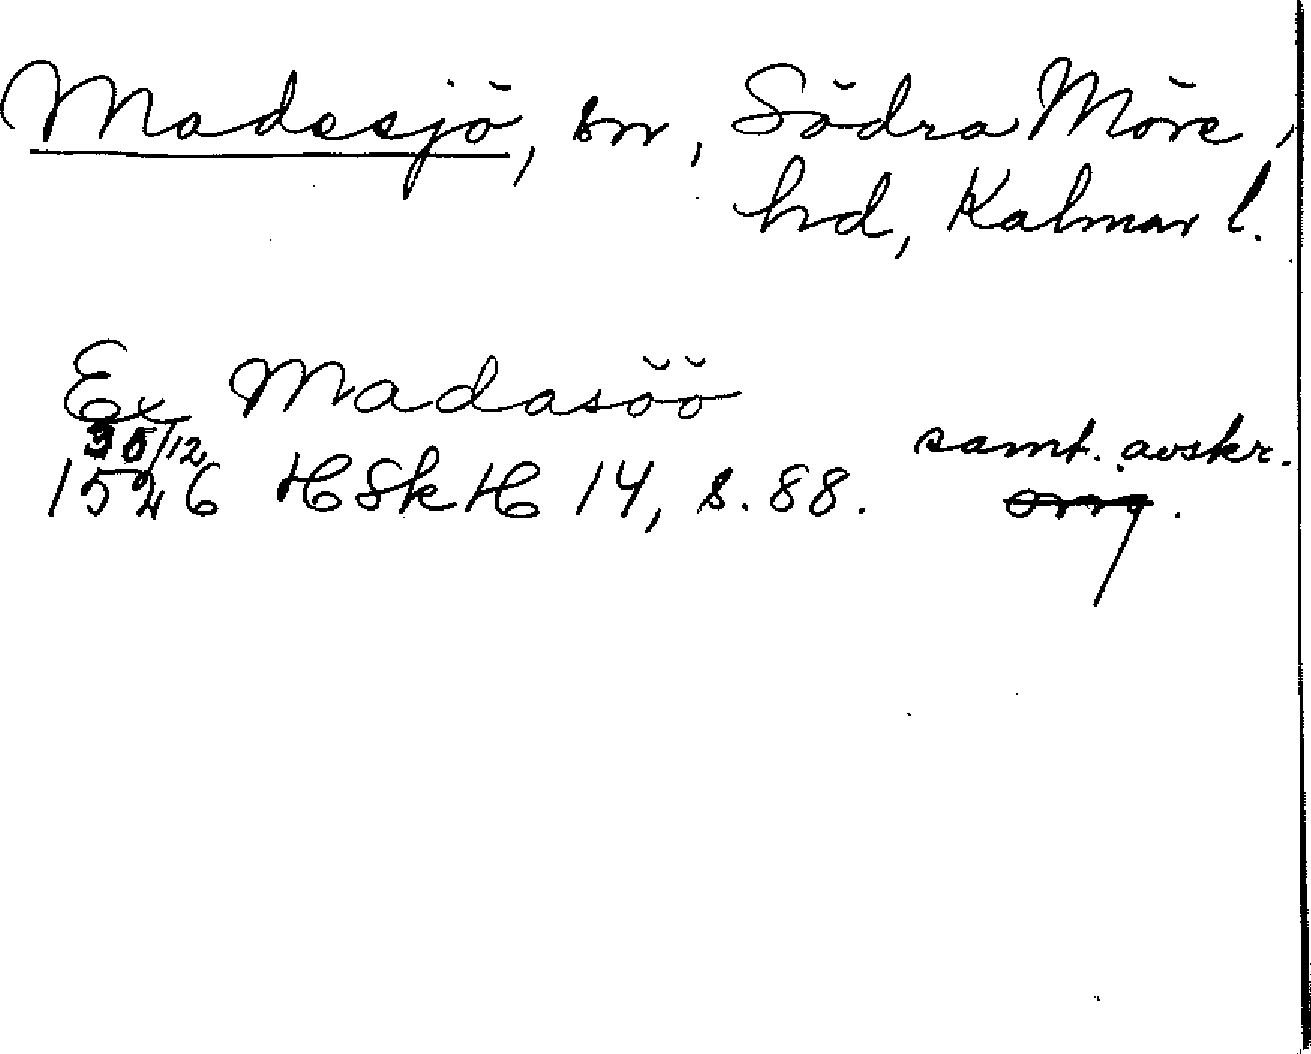 Madesjö, sn, Södra Möre,
hd, Kalmar l.
Ex Madasöö
30/12
1526 HSkH 14, s. 88.
samt. avskr.